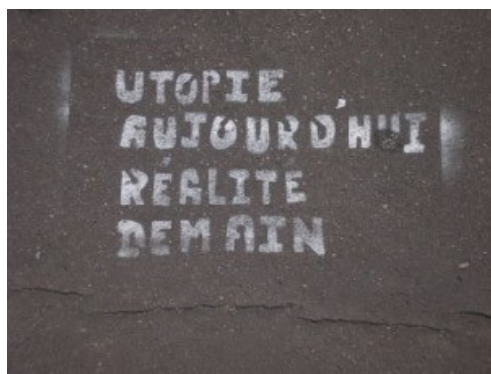 UTOPIE
AUJOURD'HUI
RÉALITÉ
DEMAIN